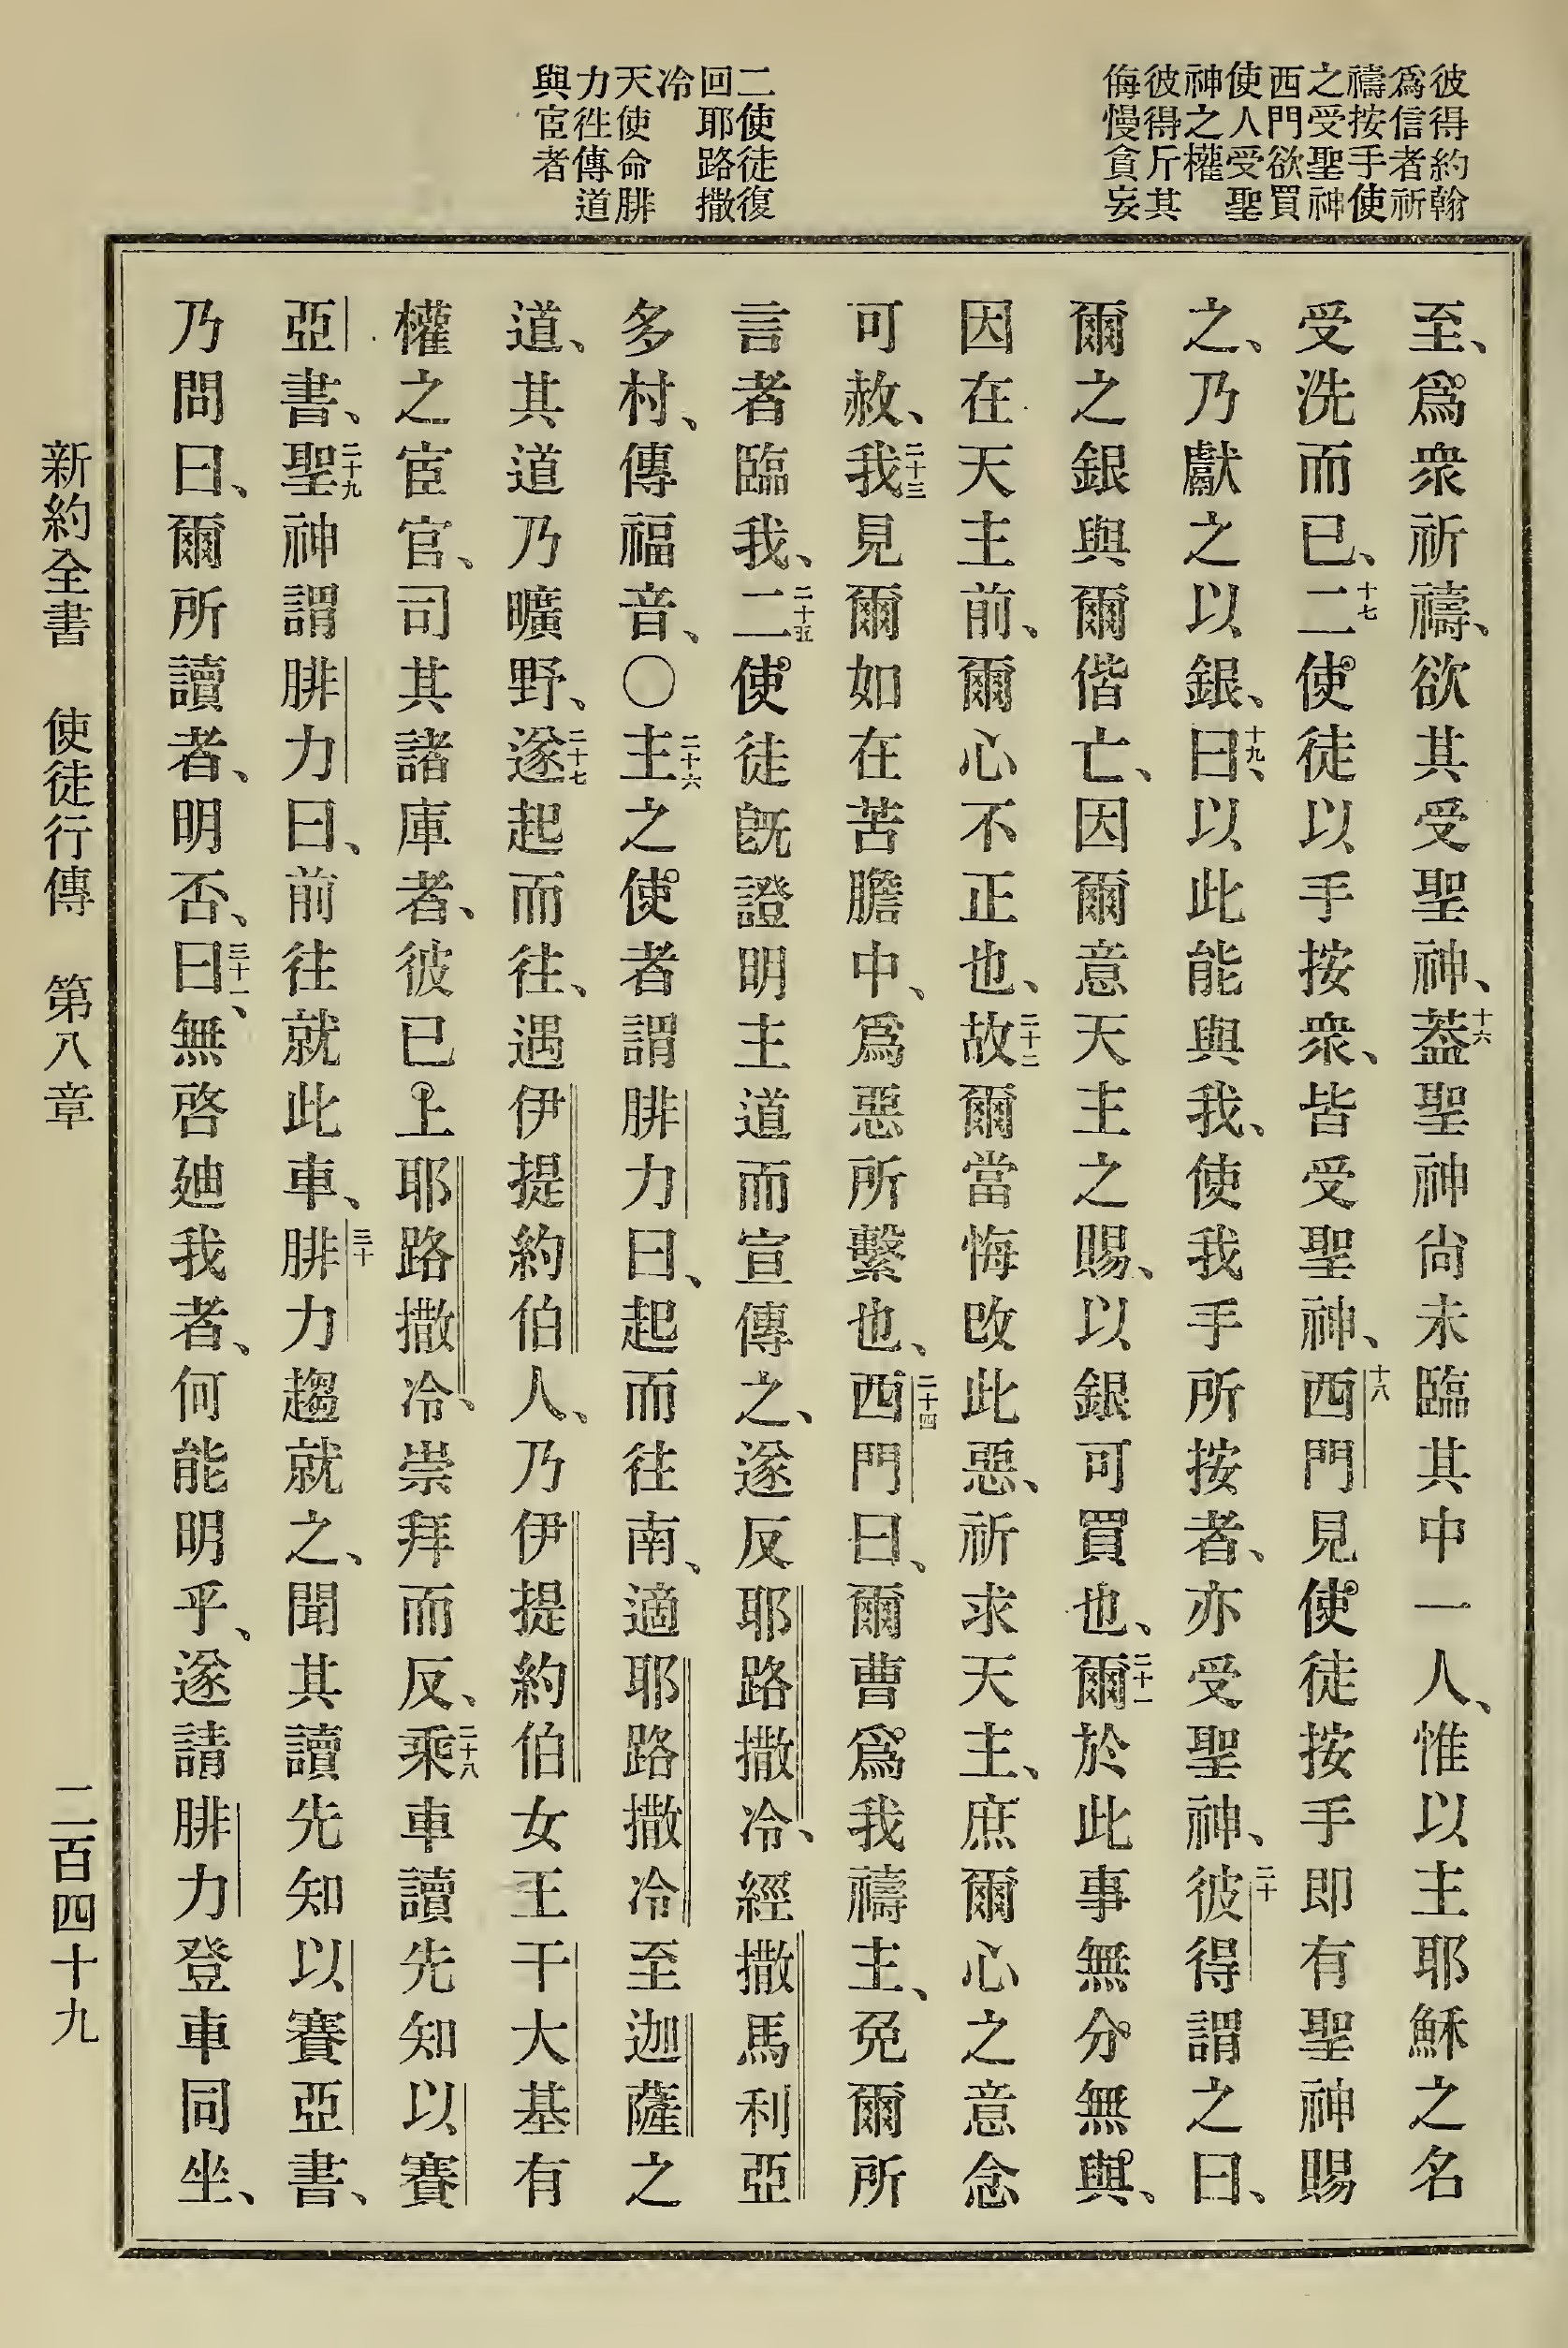 彼得約翰
爲信者祈
禱按手使
之受聖神
西門欲買
使人受聖
神之權
彼得斥其
侮慢貪妄
二使徒復
回耶路撒
冷
天使命腓
力徃傳道
與宦者
至、爲衆祈禱、欲其受聖神、十六葢聖神尙未臨其中一人、惟以主耶穌之名
受洗而已、十七二使徒以手按衆、皆受聖神、十八西門見使徒按手即有聖神賜
之、乃獻之以銀、十九曰、以此能與我、使我手所按者、亦受聖神、二十彼得謂之曰、
爾之銀與爾偕亡、因爾意天主之賜、以銀可買也、二十一爾於此事無分無與、
因在天主前、爾心不正也、二十二故爾當悔改此惡、祈求天主、庶爾心之意念
可赦、二十三我見爾如在苦膽中、爲惡所繫也、二十四西門曰、爾曹爲我禱主、免爾所
言者臨我、二十五二使徒旣證明主道而宣傳之、遂反耶路撒冷、經撒馬利亞
多村、傳福音、〇二十六主之使者謂腓力曰、起而往南、適耶路撒冷至迦薩之
道、其道乃曠野、二十七遂起而往、遇伊提約伯人、乃伊提約伯女王干大基有
權之宦官、司其諸庫者、彼已上耶路撒冷、崇拜而反、二十八乘車讀先知以賽
亞書、二十九聖神謂腓力曰、前往就此車、三十腓力趨就之、聞其讀先知以賽亞書、
乃問曰、爾所讀者、明否、三十一曰、無啓廸我者、何能明乎、遂請腓力登車同坐、
新約全書 使徒行傳 第八章 二百四十九